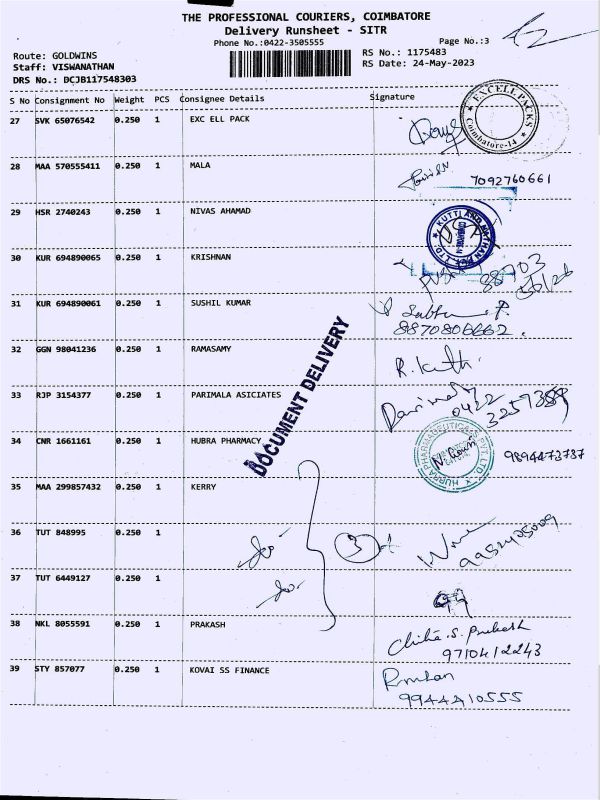 THE PROFESSIONAL COURIERS, COIMBATORE
Delivery Runsheet - SITR
Phone No.:0422-3505555 Page No.:3
Route: GOLDWINS RS No.: 1175483
Staff: VISWANATHAN RS Date: 24-May-2023
DRS No.: DCJB117548303
S No Consignment No Weight PCS Consignee Details Signature
27 SVK 65076542 0.250 1 EXC ELL PACK
EXCELL PACKS
Coimbatore-14
28 MAA 570555411 0.250 1 MALA
7092760661
29 HSR 2740243 0.250 1 NIVAS AHAMAD
30 KUR 694890065 0.250 1 KRISHNAN
31 KUR 694890061 0.250 1 SUSHIL KUMAR
8870806662.
32 GGN 98041236 0.250 1 RAMASAMY
DOCUMENT DELIVERY
33 RJP 3154377 0.250 1 PARIMALA ASICIATES
0422
34 CNR 1661161 0.250 1 HUBRA PHARMACY
HUBRA PHARMACEUTICALS PVT. LTD.
9894473737
35 MAA 299857432 0.250 1 KERRY
36 TUT 848995 0.250 1
3
37 TUT 6449127 0.250 1
38 NKL 8055591 0.250 1 PRAKASH
9710412243
39 STY 857077 0.250 1 KOVAI SS FINANCE
9944410555